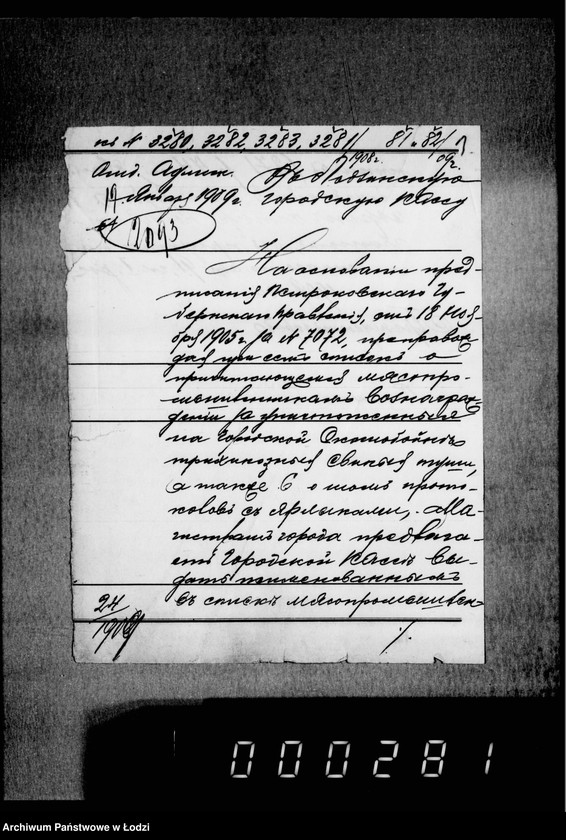 къ N 3280, 3282, 3283, 3281/1908г. 81 и 82/09г.
Отд. Админ.
19 Января 1909г.
2093
Въ Лодзинскую
городскую Кассу
На основании пред-
писанія Петроковскаго Гу-
бернскаго Правленія, отъ 18 Ноя-
бря 1905 г. за N 7072, препровож-
дая при семъ списокъ о
причитающемся мясопро-
мышленникамъ вознаграж-
деніи за уничтоженныя
на Городской Скотобойнѣ
трихинозныя свиныя туши,
а также 6 о томъ прото-
коловъ съ ярлыками, Ма-
гистратъ города предлага-
етъ Городской Кассѣ вы-
дать поименованнымъ
въ спискѣ мясопромышлен-
24
1909
./.
000281
Archiwum Państwowe w Łodzi